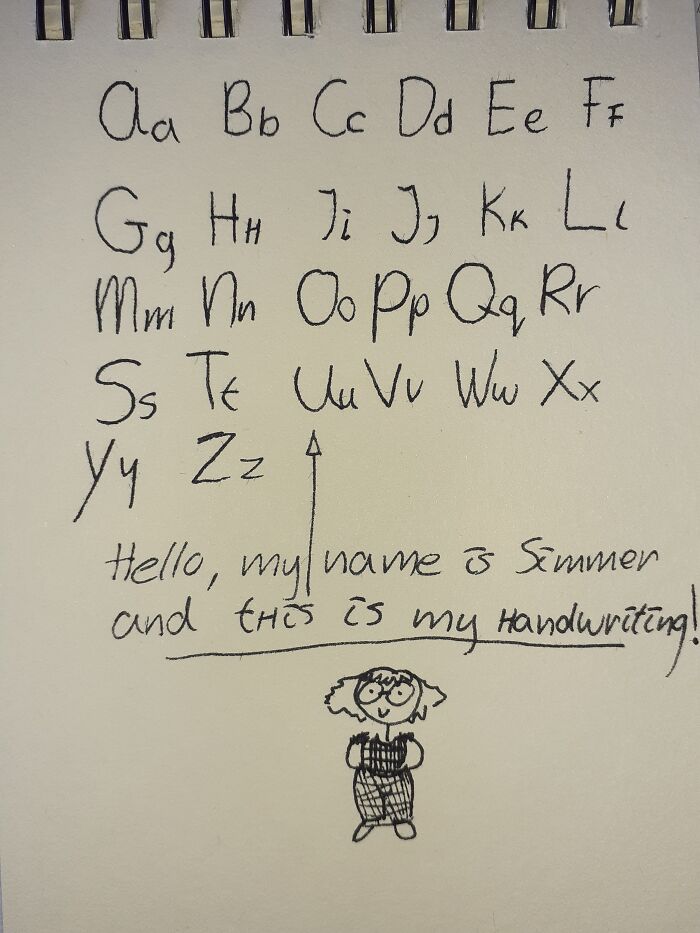 Aa Bb Cc Dd Ee Ff
Gg Hh Ii Jj Kk Ll
Mm Nn Oo Pp Qq Rr
Ss Tt Uu Vv Ww Xx
Yy Zz
Hello, my name is Simmer
and tHis is my Handwriting!